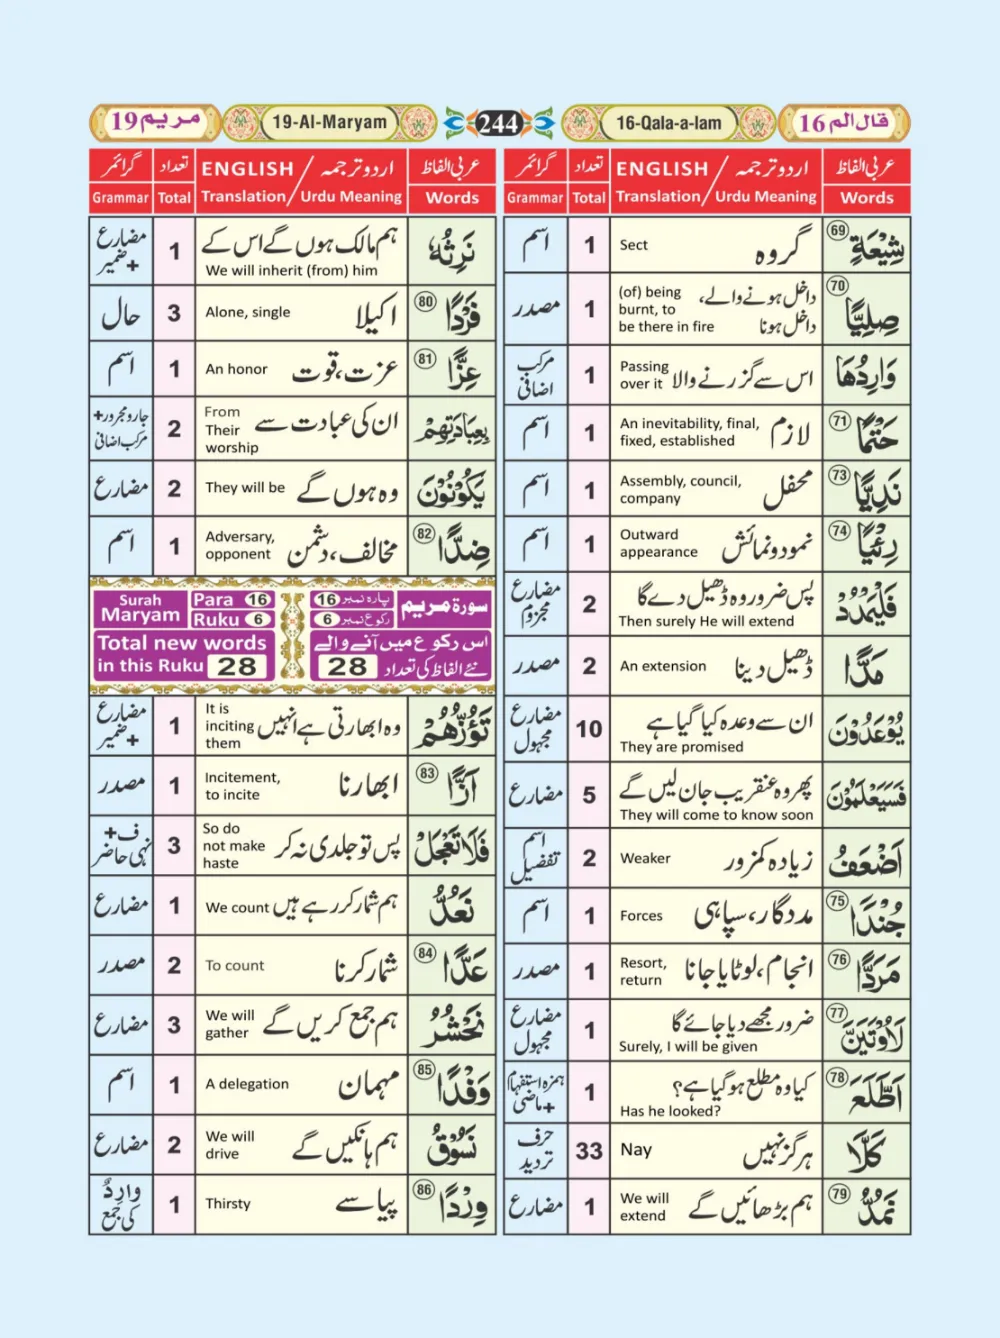 قال الم 16
16-Qala-a-lam
244
19-Al-Maryam
مریم 19
عربی الفاظ
ENGLISH / اردو ترجمہ
تعداد
گرائمر
Words
Translation / Urdu Meaning
Total
Grammar
69 شِیْعَةٍ
گروہ
Sect
1
اسم
70 صِلِیًّا
داخل ہونے والے، داخل ہونا
(of) being burnt, to be there in fire
1
مصدر
وَارِدُهَا
اس سے گزرنے والا
Passing over it
1
مرکب اضافی
71 حَتْمًا
لازم
An inevitability, final, fixed, established
1
اسم
73 نَدِیًّا
محفل
Assembly, council, company
1
اسم
74 رِءْیًا
نمود و نمائش
Outward appearance
1
اسم
فَلْیَمْدُدْ
پس ضرور وہ ڈھیل دے گا
Then surely He will extend
2
مضارع مجزوم
مَدًّا
ڈھیل دینا
An extension
2
مصدر
یُوْعَدُوْنَ
ان سے وعدہ کیا گیا ہے
They are promised
10
مضارع مجہول
فَسَیَعْلَمُوْنَ
پھر وہ عنقریب جان لیں گے
They will come to know soon
5
مضارع
اَضْعَفُ
زیادہ کمزور
Weaker
2
اسم تفضیل
75 جُنْدًا
مددگار، سپاہی
Forces
1
اسم
76 مَرَدًّا
انجام، لوٹایا جانا
Resort, return
1
مصدر
77 لَاُوْتَیَنَّ
ضرور مجھے دیا جائے گا
Surely, I will be given
1
مضارع مجہول
78 اَطَّلَعَ
کیا وہ مطلع ہو گیا ہے؟
Has he looked?
1
ہمزہ استفہام + ماضی
كَلَّا
ہرگز نہیں
Nay
33
حرف تردید
79 نَمُدُّ
ہم بڑھائیں گے
We will extend
1
مضارع
عربی الفاظ
ENGLISH / اردو ترجمہ
تعداد
گرائمر
Words
Translation / Urdu Meaning
Total
Grammar
نَرِثُهٗ
ہم مالک ہوں گے اس کے
We will inherit (from) him
1
مضارع + ضمیر
80 فَرْدًا
اکیلا
Alone, single
3
حال
81 عِزًّا
عزت، قوت
An honor
1
اسم
بِعِبَادَتِهِمْ
ان کی عبادت سے
From Their worship
2
جار و مجرور + مرکب اضافی
یَكُوْنُوْنَ
وہ ہوں گے
They will be
2
مضارع
82 ضِدًّا
مخالف، دشمن
Adversary, opponent
1
اسم
سورة مریم
پارہ نمبر 16
رکوع نمبر 6
اس رکوع میں آنے والے
نئے الفاظ کی تعداد 28
Surah Maryam
Para 16
Ruku 6
Total new words
in this Ruku 28
تَؤُزُّهُمْ
وہ ابھارتی ہے انہیں
It is inciting them
1
مضارع + ضمیر
83 اَزًّا
ابھارنا
Incitement, to incite
1
مصدر
فَلَا تَعْجَلْ
پس تو جلدی نہ کر
So do not make haste
3
ف + نہی حاضر
نَعُدُّ
ہم شمار کر رہے ہیں
We count
1
مضارع
84 عَدًّا
شمار کرنا
To count
2
مصدر
نَحْشُرُ
ہم جمع کریں گے
We will gather
3
مضارع
85 وَفْدًا
مہمان
A delegation
1
اسم
نَسُوْقُ
ہم ہانکیں گے
We will drive
2
مضارع
86 وِرْدًا
پیاسے
Thirsty
1
وارِدٌ کی جمع